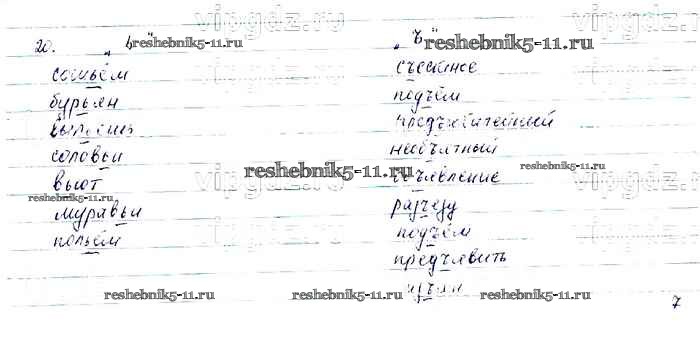 vipgdz.ru vipgdz.ru
20. „ь“ „ъ“
reshebnik5-11.ru reshebnik5-11.ru
сошьём съестное
бурьян подъём
соловьи необъятный
reshebnik5-11.ru
vipgdz.ru vipgdz.ru
вьют объявление
reshebnik5-11.ru reshebnik5-11.ru
муравьи разъезд
польём подъём
предъявить
reshebnik5-11.ru reshebnik5-11.ru
изъян
7